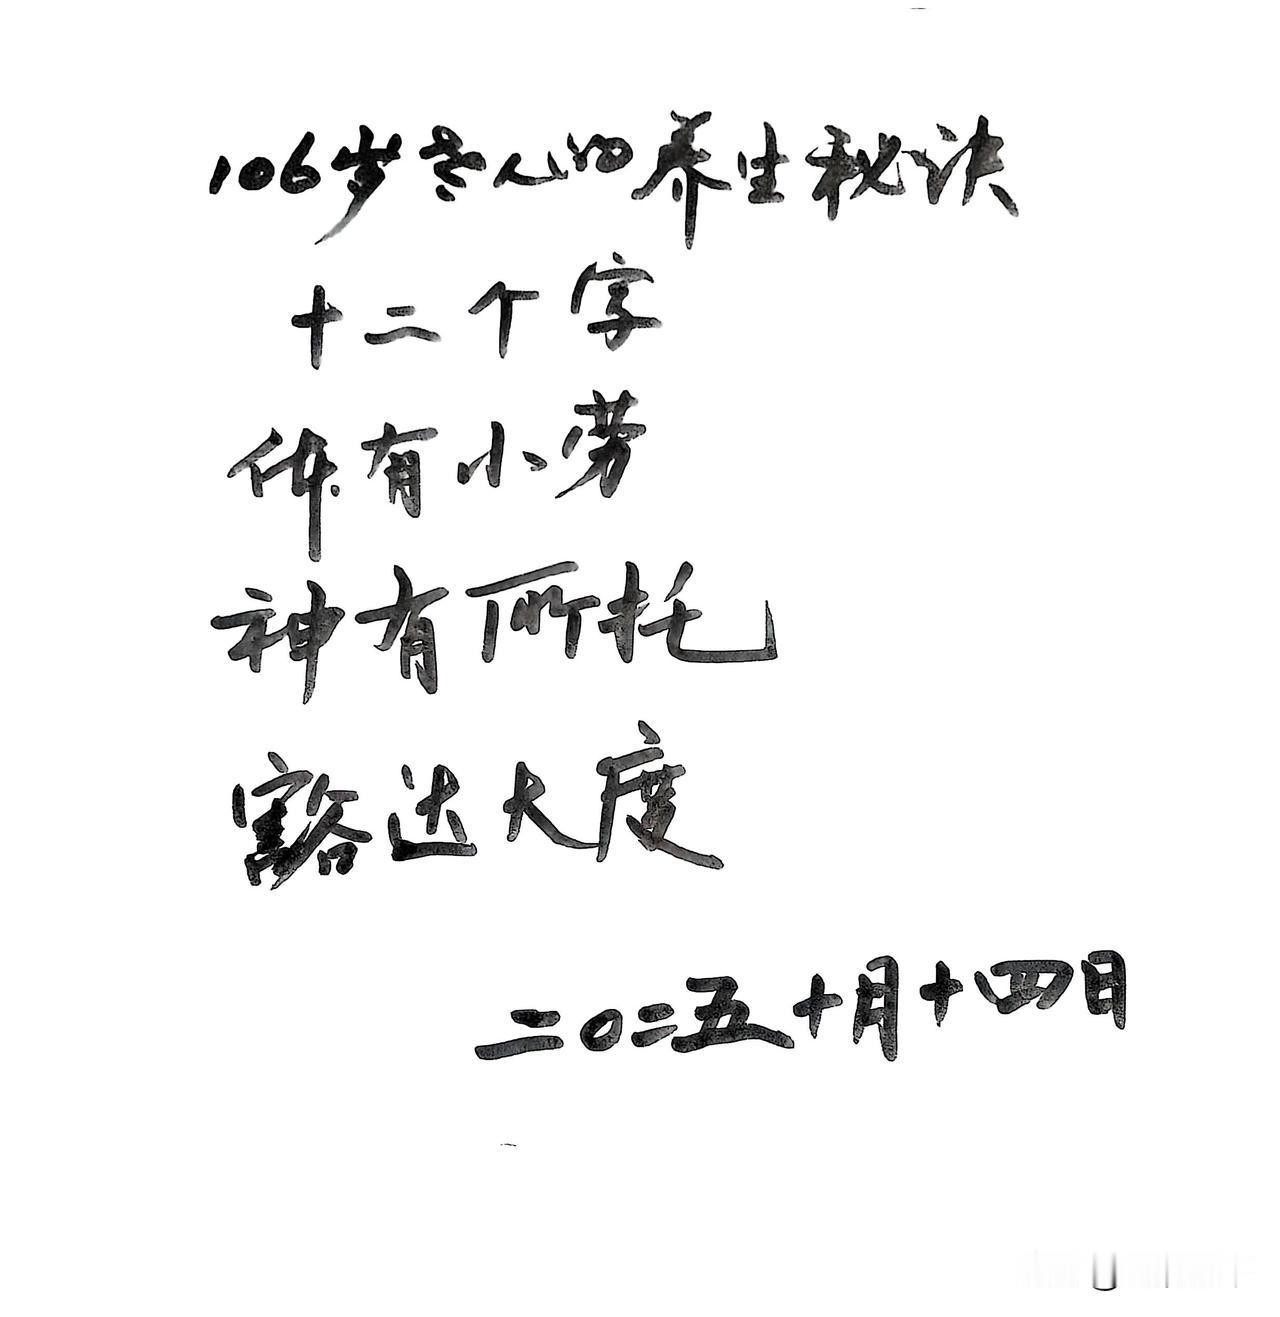 106岁老人的养生秘诀
十二个字
体有小劳
神有所托
豁达大度
二〇二五十月十四日